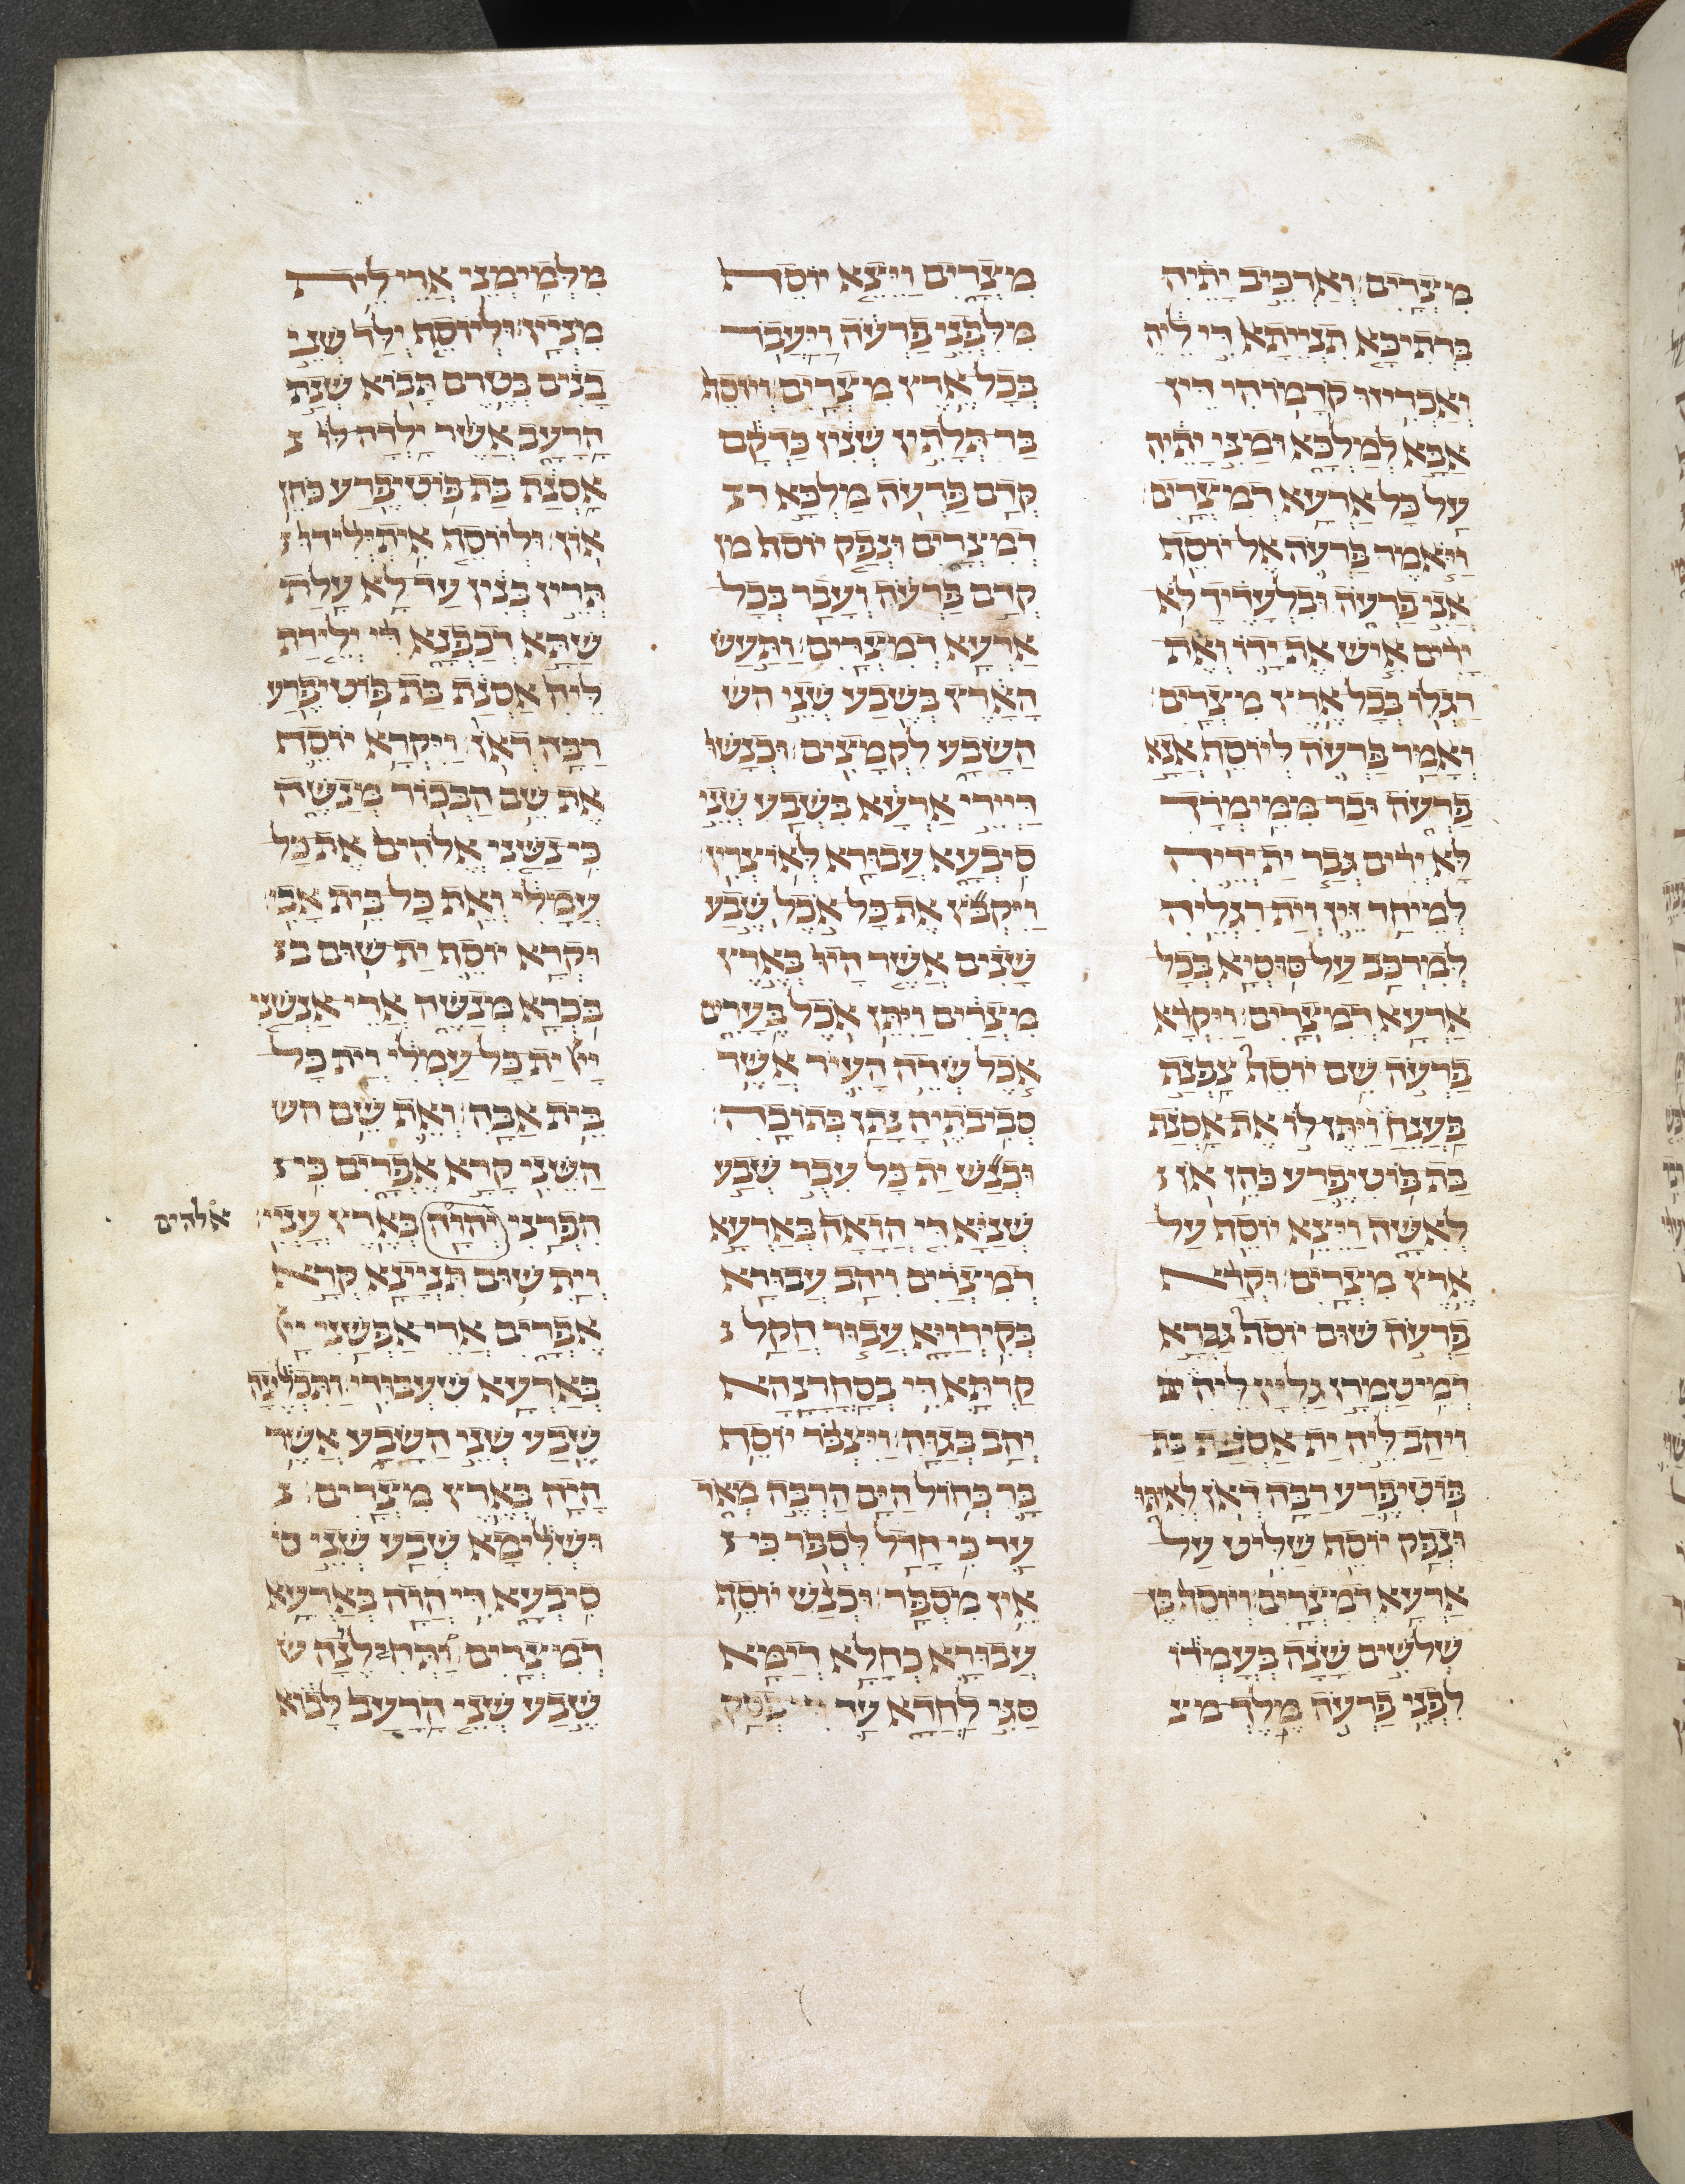 מצרים׃ וארכיב יתיה
ברתיכא תנייתא די ליה
ואכריזו קדמוהי דין
אבא למלכא ומני יתיה
על כל ארעא דמצרים׃
ויאמר פרעה אל יוסף
אני פרעה ובלעדיך לא
ירים איש את ידו ואת
רגלו בכל ארץ מצרים׃
ואמר פרעה ליוסף אנא
פרעה ובר ממימרך
לא ירים גבר ית ידיה
למיחד זין וית רגליה
למרכב על סוסיא בכל
ארעא דמצרים׃ ויקרא
פרעה שם יוסף צפנת
פענח ויתן לו את אסנת
בת פוטיפרע כהן און
לאשה ויצא יוסף על
ארץ מצרים׃ וקרא
פרעה שום יוסף גברא
דמיטמרן גלין ליה
ויהב ליה ית אסנת בת
פוטיפרע רבה דאון לאיתו
ונפק יוסף שליט על
ארעא דמצרים׃ ויוסף בן
שלשים שנה בעמדו
לפני פרעה מלך מצ
מצרים ויצא יוסף
מלפני פרעה ויעבר
בכל ארץ מצרים׃ ויוסף
בר תלתין שנין כדקם
קדם פרעה מלכא ד
דמצרים ונפק יוסף מן
קדם פרעה ועבר בכל
ארעא דמצרים׃ ותעש
הארץ בשבע שני הש
השבע לקמצים׃ וכנשו
דיירי ארעא בשבע שני
סיבעא עבורא לאוצרין׃
ויקבץ את כל אכל שבע
שנים אשר היו בארץ
מצרים ויתן אכל בערים
אכל שדה העיר אשר
סביבתיה נתן בתוכה׃
וכנש ית כל עבור שבע
שניא די הואה בארעא
דמצרים ויהב עבורא
בקירויא עבור חקל
קרתא די בסחרנהא
יהב בגוה׃ ויצבר יוסף
בר כחול הים הרבה מאד
עד כי חדל לספר כי
אין מספר׃ וכנש יוסף
עבורא כחלא דימא
סגי לחדא עד די פסק
מלמימני ארי לית
מניין׃ וליוסף ילד שני
בנים בטרם תבוא שנת
הרעב אשר ילדה לו
אסנת בת פוטיפרע כהן
און׃ וליוסף איתילידו
תרין בנין עד לא עלת
שתא דכפנא די ילידת
ליה אסנת בת פוטיפרע
רבה דאון׃ ויקרא יוסף
את שם הבכור מנשה
כי נשני אלהים את כל
עמלי ואת כל בית אבי׃
וקרא יוסף ית שום ב
בכרא מנשה ארי אנשני
יי ית כל עמלי וית כל
בית אבה׃ ואת שם הש
השני קרא אפרים כי
הפרני יהוה בארץ עניי׃
אלהים
וית שום תניינא קרא
אפרים ארי אפשני יי
בארעא שעבודי׃ ותכלינה
שבע שני השבע אשר
היה בארץ מצרים׃
ושלימא שבע שני ס
סיבעא די הוה בארעא
דמצרים׃ ותחילנה ש
שבע שני הרעב לבוא